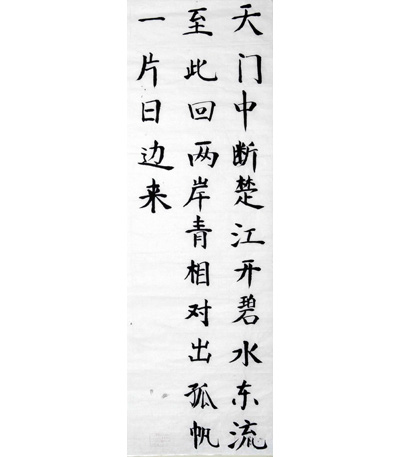 天门中断楚江开碧水东流
至此回两岸青相对出孤帆
一片日边来